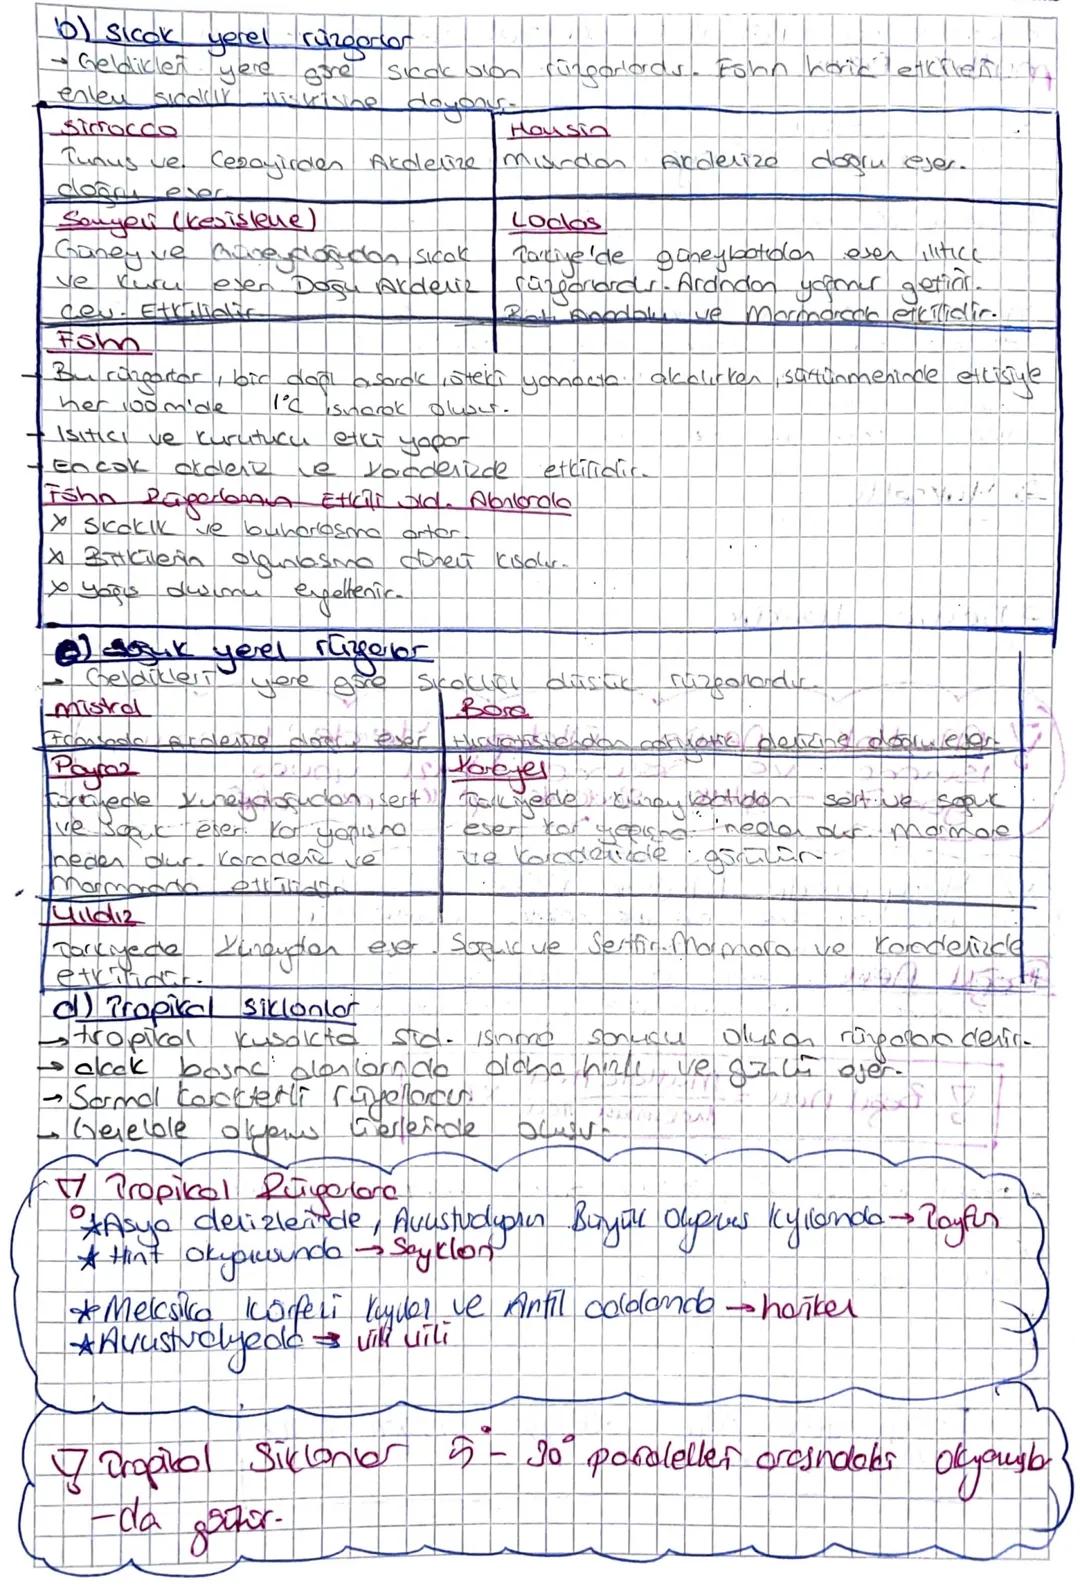 b) Sıcak yerel rüzgarlar
→ Geldikleri yere göre sıcak olan rüzgarlardır. Föhn hariç etkileri
enlem sıcaklık ilişkisine dayanır.
Sirrocco
Tunus ve Cezayirden Akdenize
doğru eser
Hamsin
Mısırdan Akdenize doğru eser.
Samyeli (Keşişleme)
Güney ve Güneydoğudan sıcak
ve kuru eser Doğu Akdeniz
çev. Etkilidir
Lodos
Türkiye'de güneybatıdan esen ılıtıcı
rüzgarlardır. Ardından yağmur getirir.
Batı Anadolu ve Marmarada etkilidir.
Föhn
- Bu rüzgarlar, bir dağı aşarak, öteki yamaçta alçalırken, sürtünmeninde etkisiyle
her 100m'de 1°C ısınarak oluşur.
- Isıtıcı ve kurutucu etki yapar
- En çok akdeniz ve karadenizde etkilidir.
Föhn Rüzgarlarının Etkili old. Alanlarda
x Sıcaklık ve buharlaşma artar.
x Bitkilerin olgunlaşma süresi kısalır.
x yağış durumu engellenir.
c) soğuk yerel rüzgarlar
→ Geldikleri yere göre sıcaklığı düşük rüzgarlardır.
mistral
Fransada Akdenize doğru eser
Bora
Hırvatistandan adriyatik denizine doğru eser.
Poyraz
Türkiyede kuzeydoğudan, sert
ve soğuk eser. Kar yağışına
neden olur. Karadeniz ve
Marmarada etkilidir
Karayel
Türkiyede kuzey batıdan sert ve soğuk
eser kar yağışına neden olur. Marmara
ve Karadenizde görülür
Yıldız
Türkiyede kuzeyden eser. Soğuk ve Serttir. Marmara ve Karadenizde
etkilidir.
d) Tropikal siklonlar
→ tropikal kuşakta şid. ısınma sonucu oluşan rüzgarlara denir.
→ alçak basınç alanlarında oldkça hızlı ve güçlü eser.
→ Sarmal karakterli rüzgarlardır.
→ Genelde okyanus üzerlerinde oluşur.
Tropikal Rüzgarlara
★ Asya denizlerinde, Avustralyanın Büyük Okyanus kıyılarında → Tayfun
★ Hint okyanusunda → Sayklon
★ Meksika körfezi kıyıları ve Antil adalarında → hariken
★ Avustralyada → vili vili
Tropikal Siklonlar 5° - 30° paralelleri arasındaki okyanuslar
-da görülür.